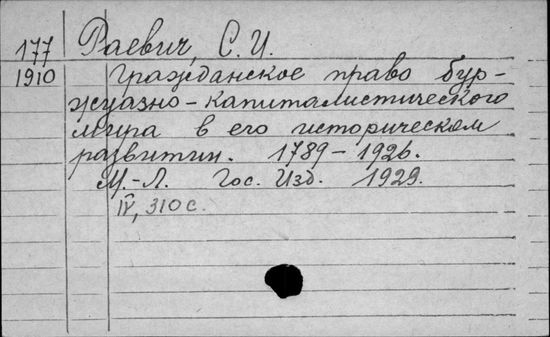 177 Раевич, С. И.
1910 Гражданское право бур-
жуазно-капиталистического
мира в его историческом
развитии. 1789-1926.
М.-Л. Гос. Изд. 1929.
IV, 310 с.